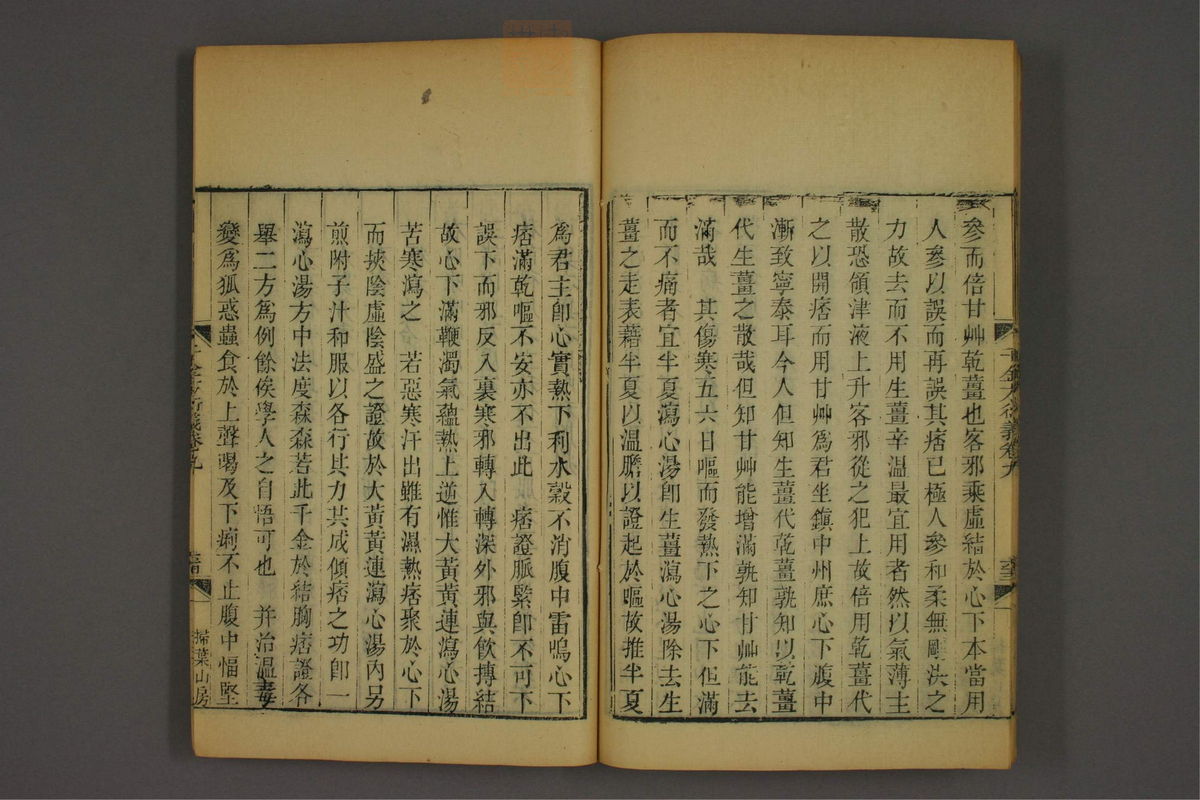 參而倍甘艸乾薑也客邪乘虛結於心下本當用
人參以誤而再誤其痞已極人參和柔無剛決之
力故去而不用生薑辛溫最宜用者然以氣薄主
散恐領津液上升客邪從之犯上故倍用乾薑代
之以開痞而用甘艸為君坐鎮中州庶心下腹中
漸致寧泰耳今人但知生薑代乾薑孰知以乾薑
代生薑之散哉但知甘艸能增滿孰知甘艸能去
滿哉　其傷寒五六日嘔而發熱下之心下但滿
而不痛者宜半夏瀉心湯卽生薑瀉心湯除去生
薑之走表藉半夏以溫膽以證起於嘔故推半夏
為君主卽心實熱下利水穀不消腹中雷鳴心下
痞滿乾嘔不安亦不出此　痞證脈緊卽不可下
誤下而邪反入裏寒邪轉入轉深外邪與飲摶結
故心下滿鞕濁氣蘊熱上逆惟大黃黃連瀉心湯
苦寒瀉之　若惡寒汗出雖有濕熱痞聚於心下
而挾陰虛陰盛之證故於大黃黃連瀉心湯內另
煎附子汁和服以各行其力共成傾痞之功卽一
瀉心湯方中法度森森若此千金於結胸痞證各
舉二方為例餘俟學人之自悟可也　并治溫毒
變為狐惑蟲食於上聲喝及下痢不止腹中愊堅
千金方衍義卷九
掃葉山房